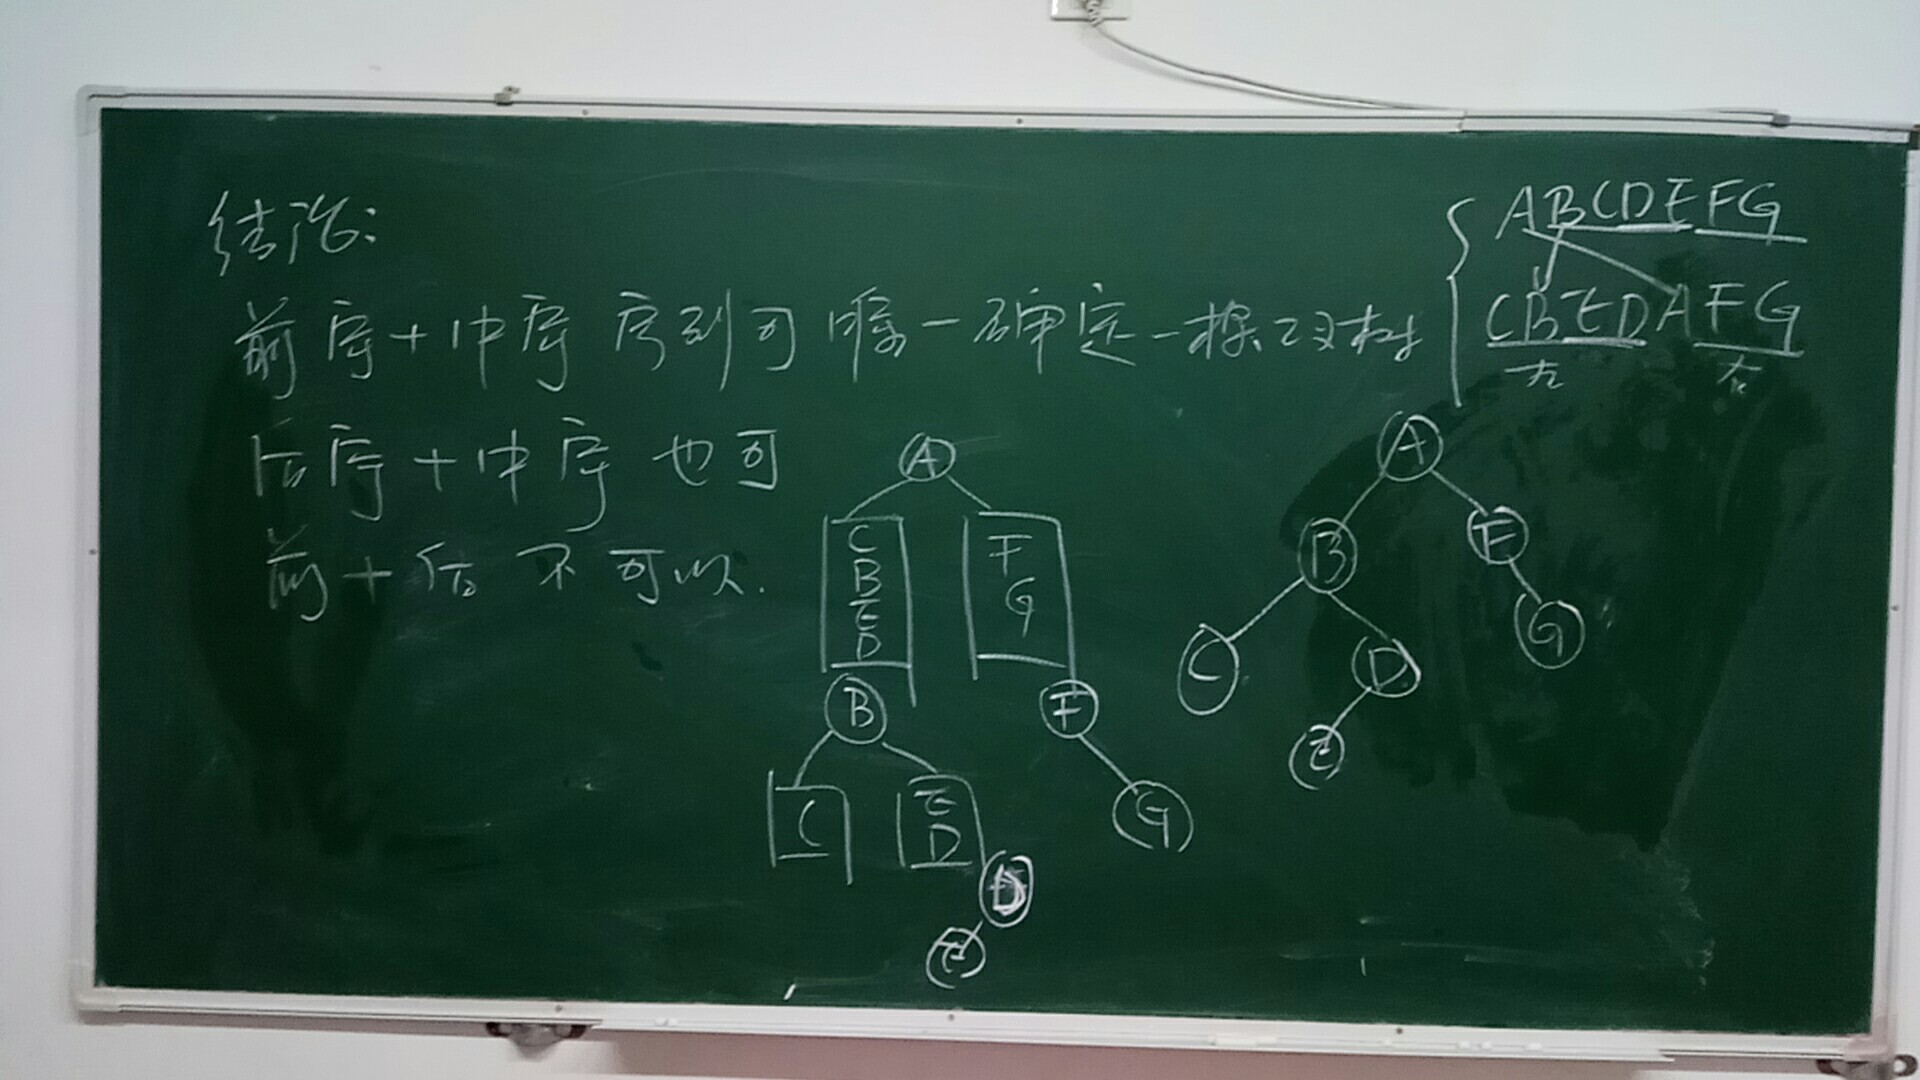 结论:
前序+中序 序列可唯一确定一棵二叉树
后序+中序 也可
前+后 不可以.
ABCDEFG
CBEDAFG
左 右
A
C
B
E
D
F
G
B
F
C
E
D
G
D
E
A
B
F
C
D
G
E